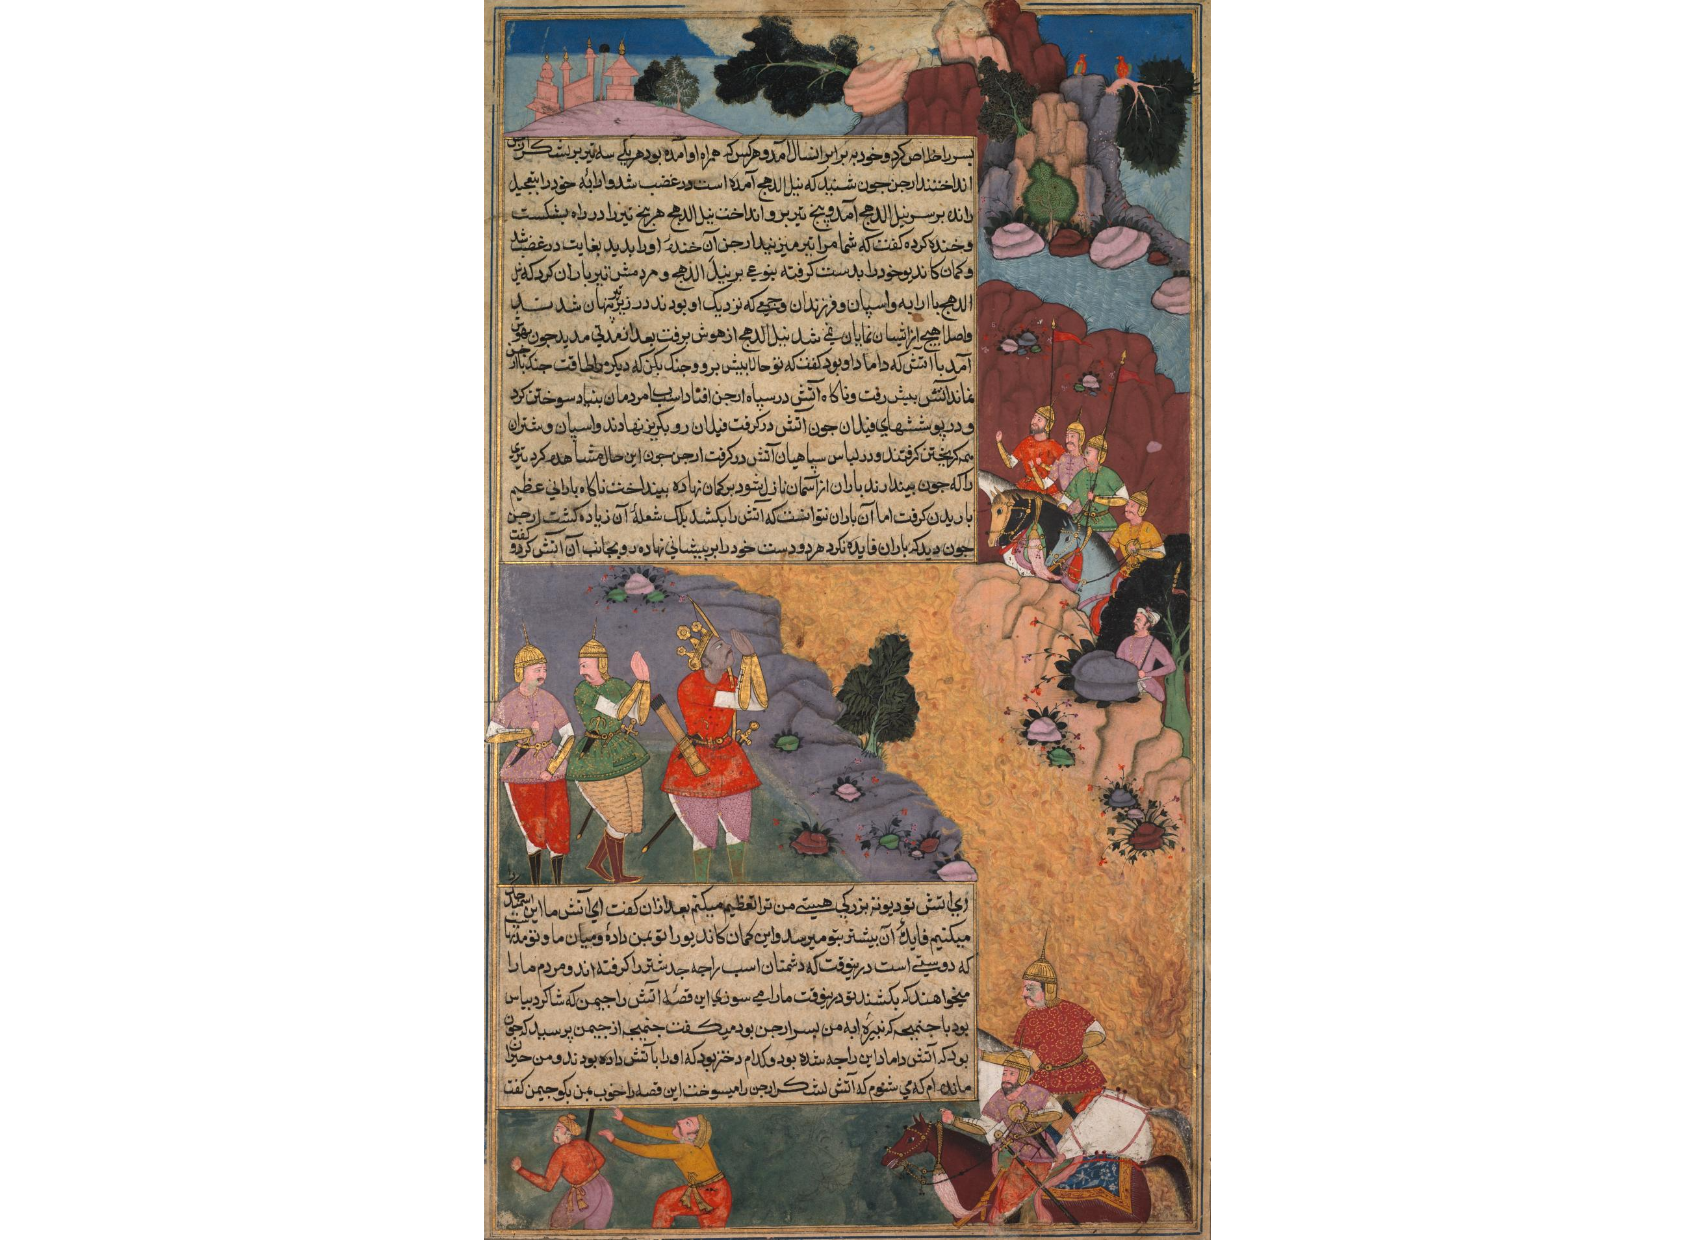 بسر را خلاص کرد و خود به برابر انسال آمد و هرکس که همراه او آمده بود هر یکی سه تیر بر لشکر ارجن
انداختند ارجن جون شنید که نیل الدهج آمده است در غضب شد و ارابه خود را بتعجیل
رانده بر سر نیل الدهج آمد و پنج تیر بر و انداخت نیل الدهج هر پنج تیر را در راه بشکست
و خنده کرده کفت که شما مرا تیر میزنید ارجن آن خنده او را بدید بغایت در غضب شد
و کمان کاندیو خود را بدست کرفته بنوعی بر نیل الدهج و مردمش تیر باران کرد که نیل
الدهج با ارابه و اسپان و فرزندان و جمعی که نزدیک او بودند در زیر تیر پنهان شدند
و اصلا هیچ از ایشان نمایان نمی شد نیل الدهج از هوش برفت بعد از مدتی مدید جون بهوش
آمد با آتش که داماد او بود کفت که تو حالا پیش برو و جنک بکن که دیکر مرا طاقت جنک با ارجن
نماند آتش پیش رفت و ناکاه آتش در سپاه ارجن افتاد اسباب مردمان بنیاد سوختن کرد
و در پوششهای فیلان جون آتش در کرفت فیلان رو بکریز نهادند و اسپان و شتران
همه کریختن کرفتند و در لباس سپاهیان آتش در کرفت ارجن جون این حال مشاهده کرد تیری
را که جون بیندازند باران از آسمان نازل شود بر کمان نهاده بینداخت ناکاه بارانی عظیم
باریدن کرفت اما آن باران نتوانست که آتش را بکشد بلک شعله آن زیاده کشت ارجن
جون دید که باران فایده نکرد هر دو دست خود را بر پیشانی نهاده رو بجانب آن آتش کرد و کفت
ای آتش تو دیوته بزرکی هستی من ترا تعظیم میکنم بعد ازان کفت ای آتش ما این اسمید جک
میکنیم فایده آن بیشتر بتو میرسد و این کمان کاندیو را تو بمن داده و میان ما و تو مدتها
که دوستی است درینوقت که دشمنان اسب راجه جدشتر را کرفته اند و مردم ما را
میخواهند که بکشند تو درینوقت ما را می سوزی این قصه آتش را جیمن که شاکرد بیاس
بود با جنمیجی که نبیره ابه من بسر ارجن بود میکفت جنمیجی از جیمن پرسید که جون
بود که آتش داماد این راجه شده بود و کدام دختر بود که او را بآتش داده بودند و من حیران
مانده ام که می شنوم که آتش لشکر ارجن را میسوخت این قصه را خوب بمن بکو جیمن کفت